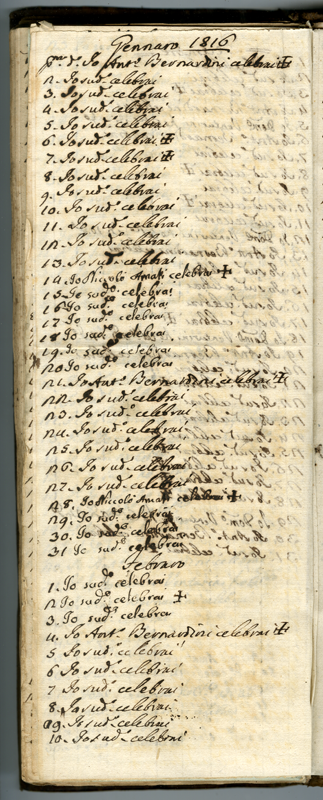 Gennaro 1816
P.mo d.o Io Ant.o Bernardini celebrai ✠
2. Io sud.o celebrai
3. Io sud.o celebrai
4. Io sud.o celebrai
5. Io sud.o celebrai
6. Io sud.o celebrai ✠
7. Io sud.o celebrai ✠
8. Io sud.o celebrai
9. Io sud.o celebrai
10. Io sud.o celebrai
11. Io sud.o celebrai
12. Io sud.o celebrai
13. Io sud.o celebrai
14 Io Niccolò Amati celebrai ✠
15 Io sud.o celebrai
16 Io sud.o celebrai
17 Io sud.o celebrai
18 Io sud.o celebrai
19. Io sud.o celebrai
20 Io sud.o celebrai
21. Io Ant.o Bernardini celebrai ✠
22. Io sud.o celebrai
23. Io sud.o celebrai
24. Io sud.o celebrai
25. Io sud.o celebrai
26. Io sud.o celebrai
27. Io sud.o celebrai
28. Io Niccolò Amati celebrai ✠
29. Io sud.o celebrai
30. Io sud.o celebrai
31 Io sud.o celebrai
Febraro
1. Io sud.o celebrai
2 Io sud.o celebrai ✠
3. Io sud.o celebrai
4. Io Ant.o Bernardini celebrai ✠
5 Io sud.o celebrai
6 Io sud.o celebrai
7 Io sud.o celebrai
8. Io sud.o celebrai
9. Io sud.o celebrai
10. Io sud.o celebrai